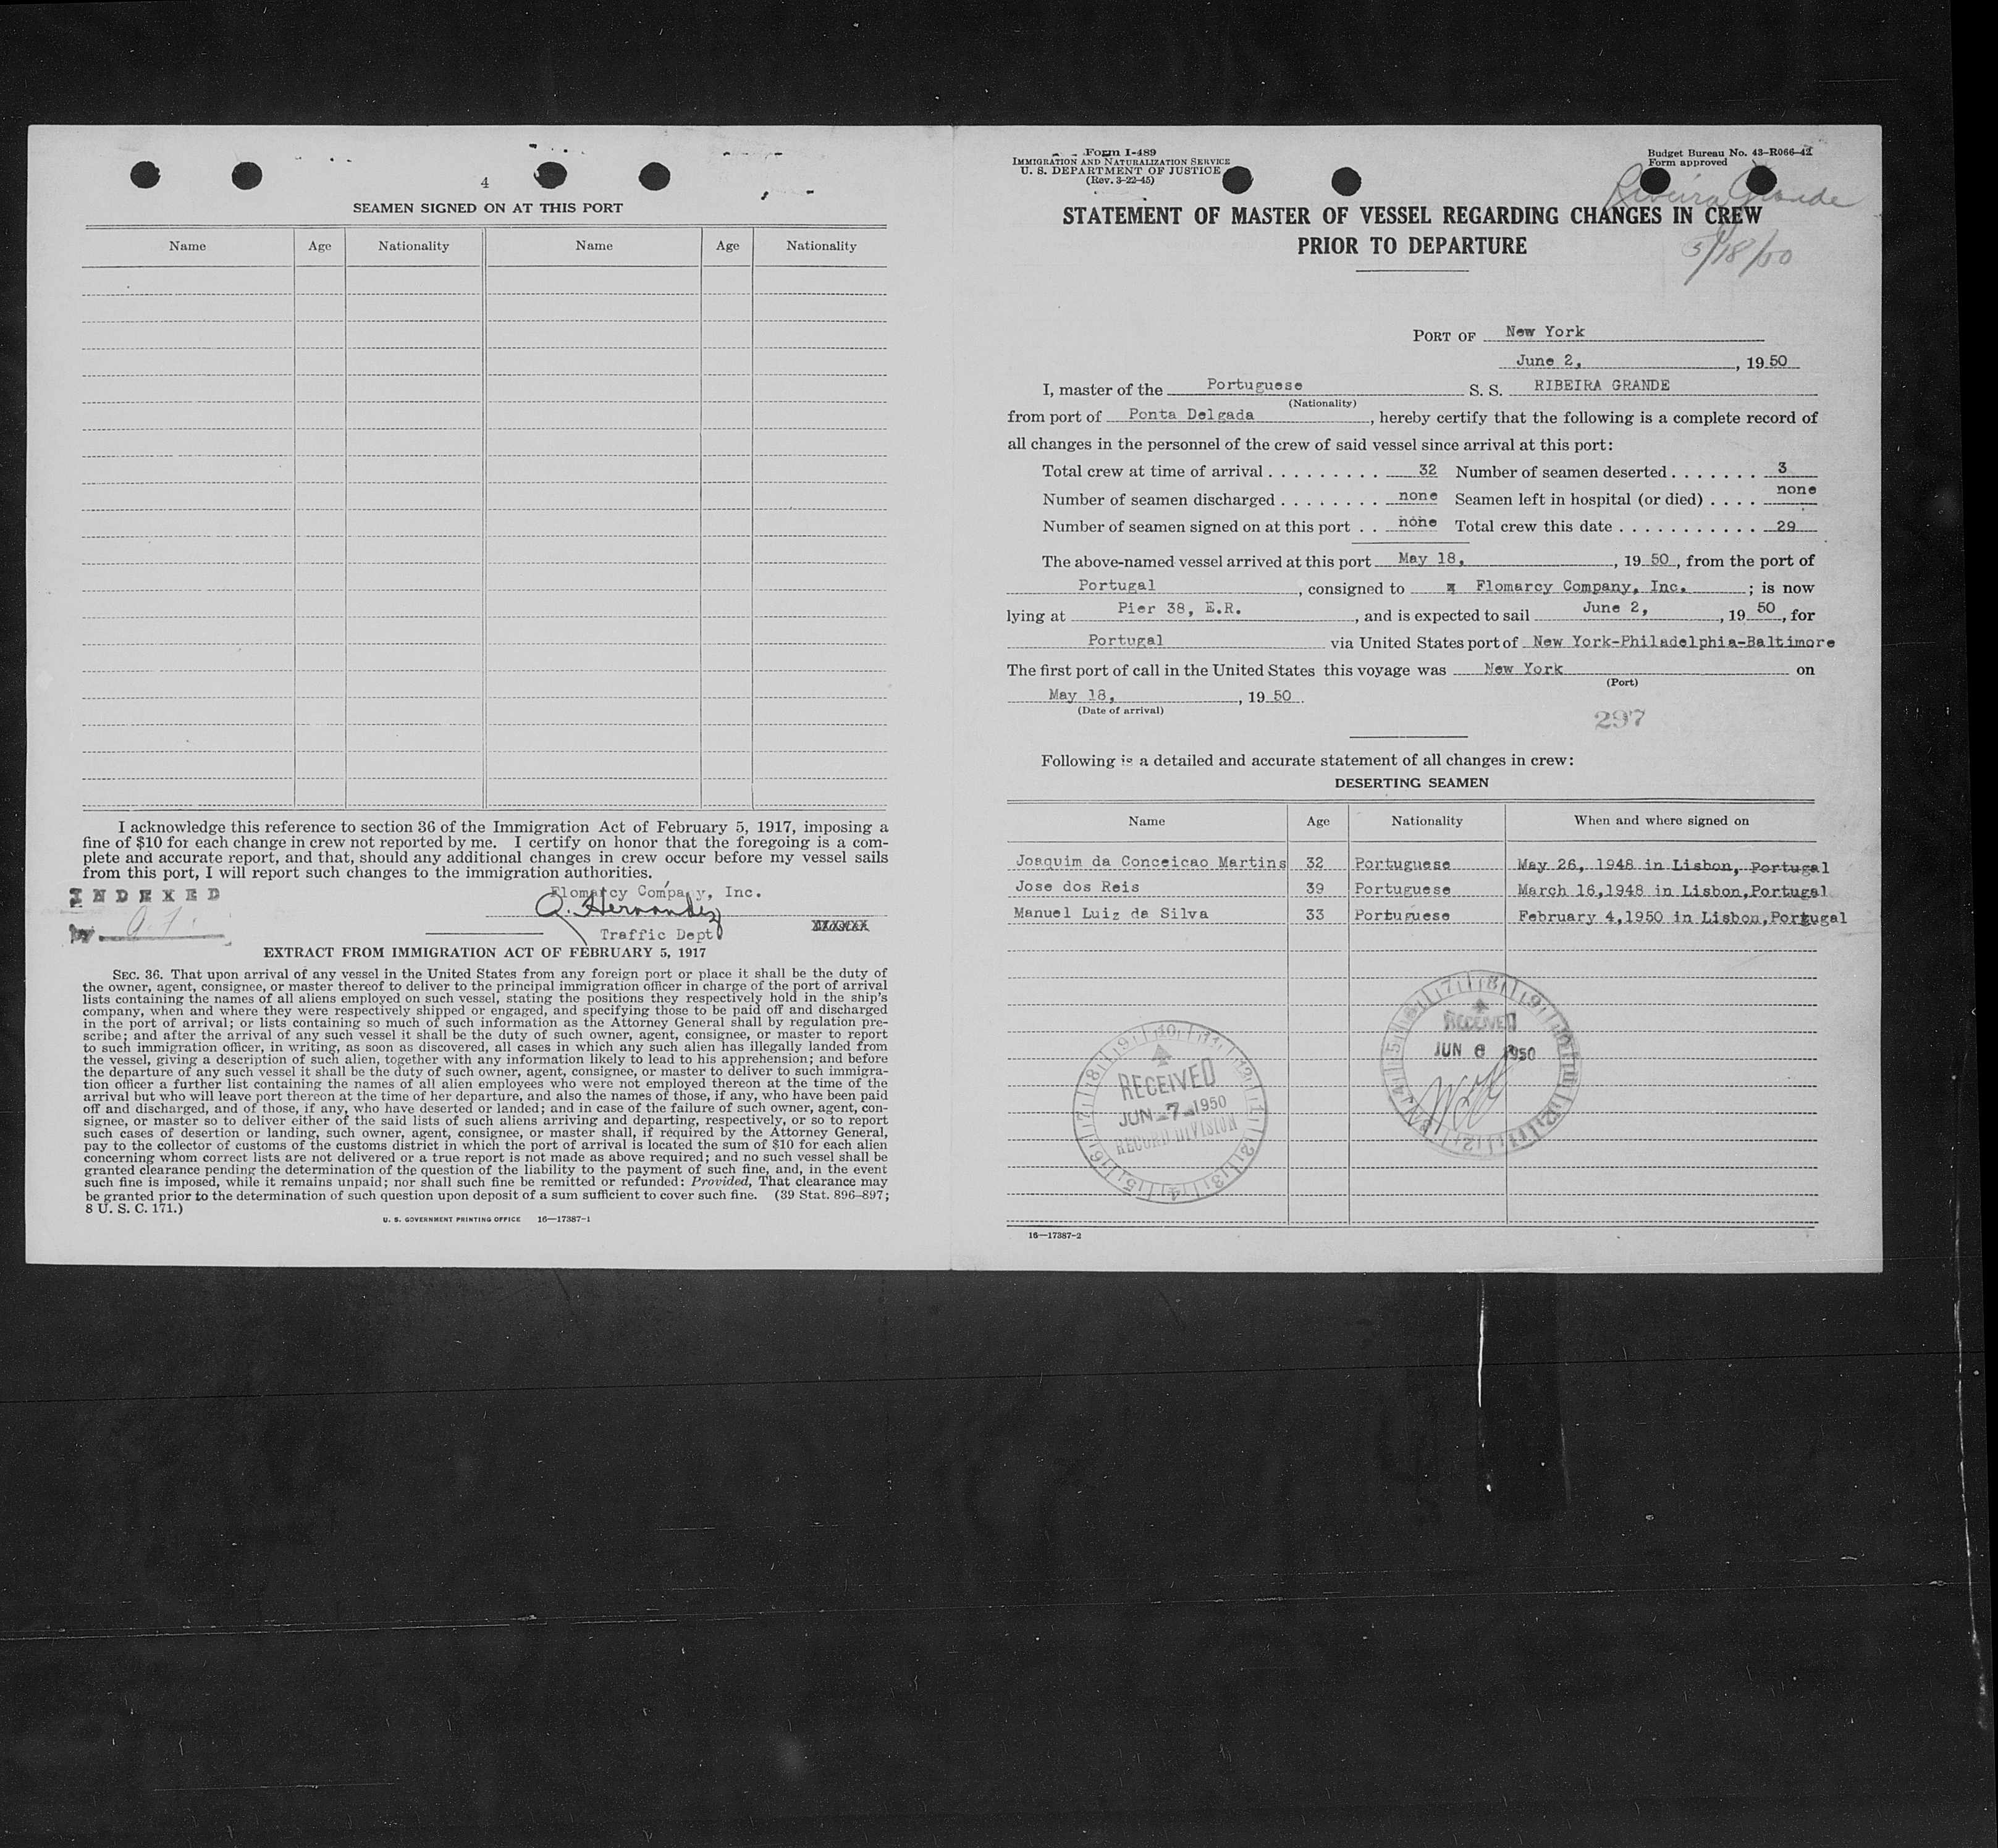 4
SEAMEN SIGNED ON AT THIS PORT
Name Age Nationality Name Age Nationality
I acknowledge this reference to section 36 of the Immigration Act of February 5, 1917, imposing a
fine of $10 for each change in crew not reported by me. I certify on honor that the foregoing is a com-
plete and accurate report, and that, should any additional changes in crew occur before my vessel sails
from this port, I will report such changes to the immigration authorities.
INDEXED
Flomarcy Company, Inc.
A. Hernandez
by
Traffic Dept
EXTRACT FROM IMMIGRATION ACT OF FEBRUARY 5, 1917
SEC. 36. That upon arrival of any vessel in the United States from any foreign port or place it shall be the duty of
the owner, agent, consignee, or master thereof to deliver to the principal immigration officer in charge of the port of arrival
lists containing the names of all aliens employed on such vessel, stating the positions they respectively hold in the ship's
company, when and where they were respectively shipped or engaged, and specifying those to be paid off and discharged
in the port of arrival; or lists containing so much of such information as the Attorney General shall by regulation pre-
scribe; and after the arrival of any such vessel it shall be the duty of such owner, agent, consignee, or master to report
to such immigration officer, in writing, as soon as discovered, all cases in which any such alien has illegally landed from
the vessel, giving a description of such alien, together with any information likely to lead to his apprehension; and before
the departure of any such vessel it shall be the duty of such owner, agent, consignee, or master to deliver to such immigra-
tion officer a further list containing the names of all alien employees who were not employed thereon at the time of the
arrival but who will leave port thereon at the time of her departure, and also the names of those, if any, who have been paid
off and discharged, and of those, if any, who have deserted or landed; and in case of the failure of such owner, agent, con-
signee, or master so to deliver either of the said lists of such aliens arriving and departing, respectively, or so to report
such cases of desertion or landing, such owner, agent, consignee, or master shall, if required by the Attorney General,
pay to the collector of customs of the customs district in which the port of arrival is located the sum of $10 for each alien
concerning whom correct lists are not delivered or a true report is not made as above required; and no such vessel shall be
granted clearance pending the determination of the question of the liability to the payment of such fine, and, in the event
such fine is imposed, while it remains unpaid; nor shall such fine be remitted or refunded: Provided, That clearance may
be granted prior to the determination of such question upon deposit of a sum sufficient to cover such fine. (39 Stat. 896-897;
8 U. S. C. 171.)
U. S. GOVERNMENT PRINTING OFFICE 16—17387-1
Form I-489
IMMIGRATION AND NATURALIZATION SERVICE
U. S. DEPARTMENT OF JUSTICE
(Rev. 3-22-45)
Budget Bureau No. 43-R066-42
Form approved
Ribeira Grande
5/18/50
STATEMENT OF MASTER OF VESSEL REGARDING CHANGES IN CREW
PRIOR TO DEPARTURE
PORT OF New York
June 2, , 19 50
I, master of the Portuguese S. S. RIBEIRA GRANDE
(Nationality)
from port of Ponta Delgada , hereby certify that the following is a complete record of
all changes in the personnel of the crew of said vessel since arrival at this port:
Total crew at time of arrival . . . . . . . . . 32 Number of seamen deserted . . . . . . . 3
Number of seamen discharged . . . . . . . . none Seamen left in hospital (or died) . . . . none
Number of seamen signed on at this port . . none Total crew this date . . . . . . . . . . . 29
The above-named vessel arrived at this port May 18, , 19 50 , from the port of
Portugal , consigned to x Flomarcy Company, Inc. ; is now
lying at Pier 38, E.R. , and is expected to sail June 2, , 19 50 , for
Portugal via United States port of New York-Philadelphia-Baltimore
The first port of call in the United States this voyage was New York on
(Port)
May 18, , 19 50 .
(Date of arrival)
297
Following is a detailed and accurate statement of all changes in crew:
DESERTING SEAMEN
Name Age Nationality When and where signed on
Joaquim da Conceicao Martins 32 Portuguese May 26, 1948 in Lisbon, Portugal
Jose dos Reis 39 Portuguese March 16,1948 in Lisbon,Portugal
Manuel Luiz da Silva 33 Portuguese February 4,1950 in Lisbon,Portugal
RECEIVED
JUN 6 1950
RECEIVED
JUN-7-1950
RECORD DIVISION
16—17387-2